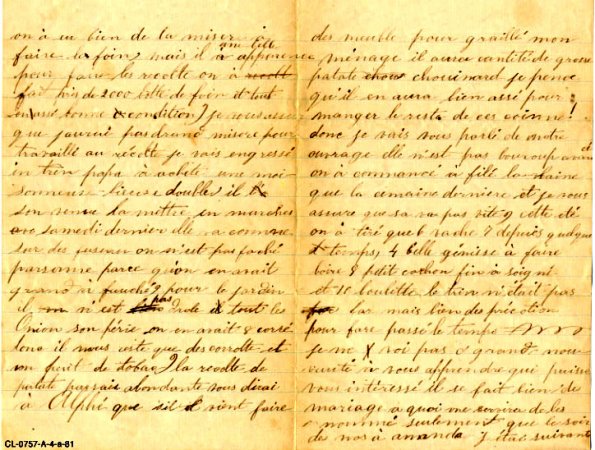 on à eu bien de la miser à
faire le foin mais il à une bell apparence
pour faire les récolte on à
fait près de 2000 botte de foin et tout
en assé bonne condition) je vous assu
que jaurai pas drand misere pour
travaillé au récolte je sais engressé
en trin papa à acheté une moi
sonneuse lieuse double il
son venu la mettre en marche
samedi dernier elle a comme
sur des on n'est pas faché
parsonne parce qu'on en avait
grand à fauché) pour le jardin
il n'est pas drole tout les
onion son péris on en avait 8 corsé
dona il nous reste que des corrotte et
un fruit de tobac) la récolte de
patate passai abondante vous dirai
à Alphé que sil il vient faire
des meuble pour graillé mon
ménage il aura cantité de grosse
patate chouinard je pence
qu'il en aura bien assé pour
manger le reste de ces coinne!
donc je vais vous parlé de notre
ouvrage elle n'est pas boucoup
on à commancé à filé la laine
que la cemaine derniere et je vous
assure que sa vas pas vite) cette été
on à tiré que 6 vache 7 depuis quelque
temps, 4 belle génisse à faire
boire 8 ptit cochon fin à soigni
et 10 loulotte le trin n'était pas
lar mais bien des fricotion
pour fare passé le temps
je ne voi pas d grand nou-
vauité à vous apprendre qui puisse
vous intéressé il se fait bien des
mariage a quoi me servira de les
nommé seulement que le soir
de nos à amanda j etai suivant
CL-0757-A-4-a-81